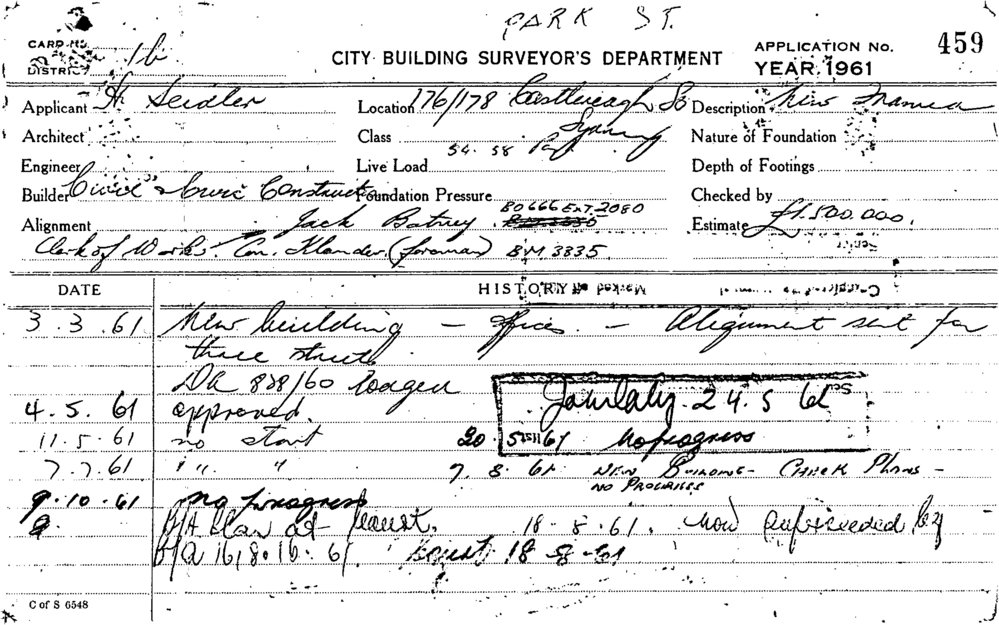 PARK ST.
CARD No. 1b
DISTRICT
CITY BUILDING SURVEYOR'S DEPARTMENT
APPLICATION No. 459
YEAR 1961
Applicant H. Seidler
Location 176/178 Castlereagh St
Sydney
Description New
Architect
Class
54-58 Park
Nature of Foundation
Engineer
Live Load
Depth of Footings
Builder Civil & Civic Construct
Foundation Pressure
Checked by
Alignment Jack
B0666 Ext 2080
Estimate £1,500,000.
Clerk of Works. Con. (foreman) BM 3335
DATE
HISTORY
3.3.61 New building — offices. — Alignment sent for
three streets
DA 828/60 lodged
4.5.61 approved.
24.5.61
11.5.61 no start
20 No progress
7.7.61 " "
7.8.61 NEW BUILDING - CHECK PLANS -
NO PROGRESS
9.10.61 no progress
B/A Plan at 18.8.61. now superseded by
B/A 1618.16.61. 18-8-61
C of S 6548